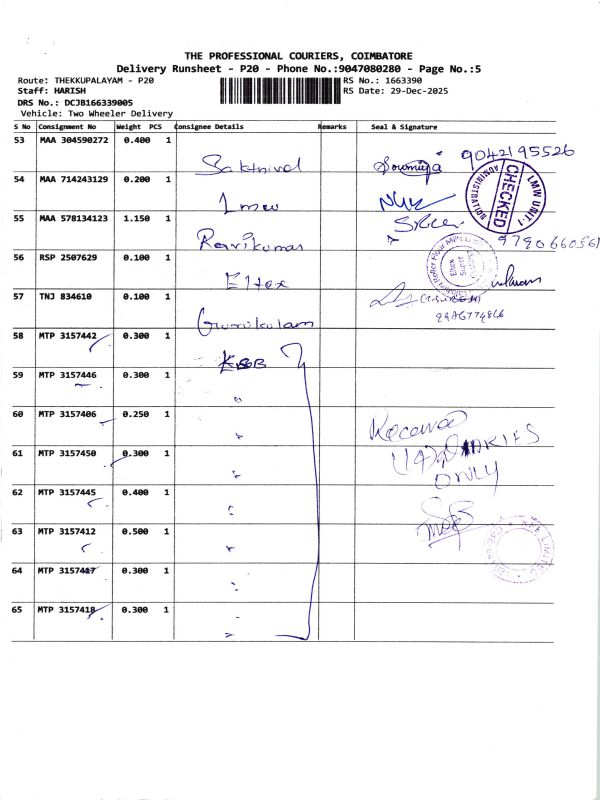 THE PROFESSIONAL COURIERS, COIMBATORE
Delivery Runsheet - P20 - Phone No.:9047080280 - Page No.:5
Route: THEKKUPALAYAM - P20 RS No.: 1663390
Staff: HARISH RS Date: 29-Dec-2025
DRS No.: DCJB166339005
Vehicle: Two Wheeler Delivery
S No Consignment No Weight PCS Consignee Details Remarks Seal & Signature
53 MAA 304590272 0.400 1 Sakthivel Sowmiya 9042195526
54 MAA 714243129 0.200 1 Lmw
ADMINISTRATION CHECKED LMW UNIT-1
55 MAA 578134123 1.150 1 Ravikumar 9790660561
56 RSP 2507629 0.100 1 Eltex
57 TNJ 834610 0.100 1 Gurukulam
58 MTP 3157442 0.300 1 KSB
59 MTP 3157446 0.300 1 "
60 MTP 3157406 0.250 1 "
61 MTP 3157450 0.300 1 "
Received
(14) DIARIES
ONLY
62 MTP 3157445 0.400 1 "
63 MTP 3157412 0.500 1 "
64 MTP 3157417 0.300 1 "
65 MTP 3157418 0.300 1 "